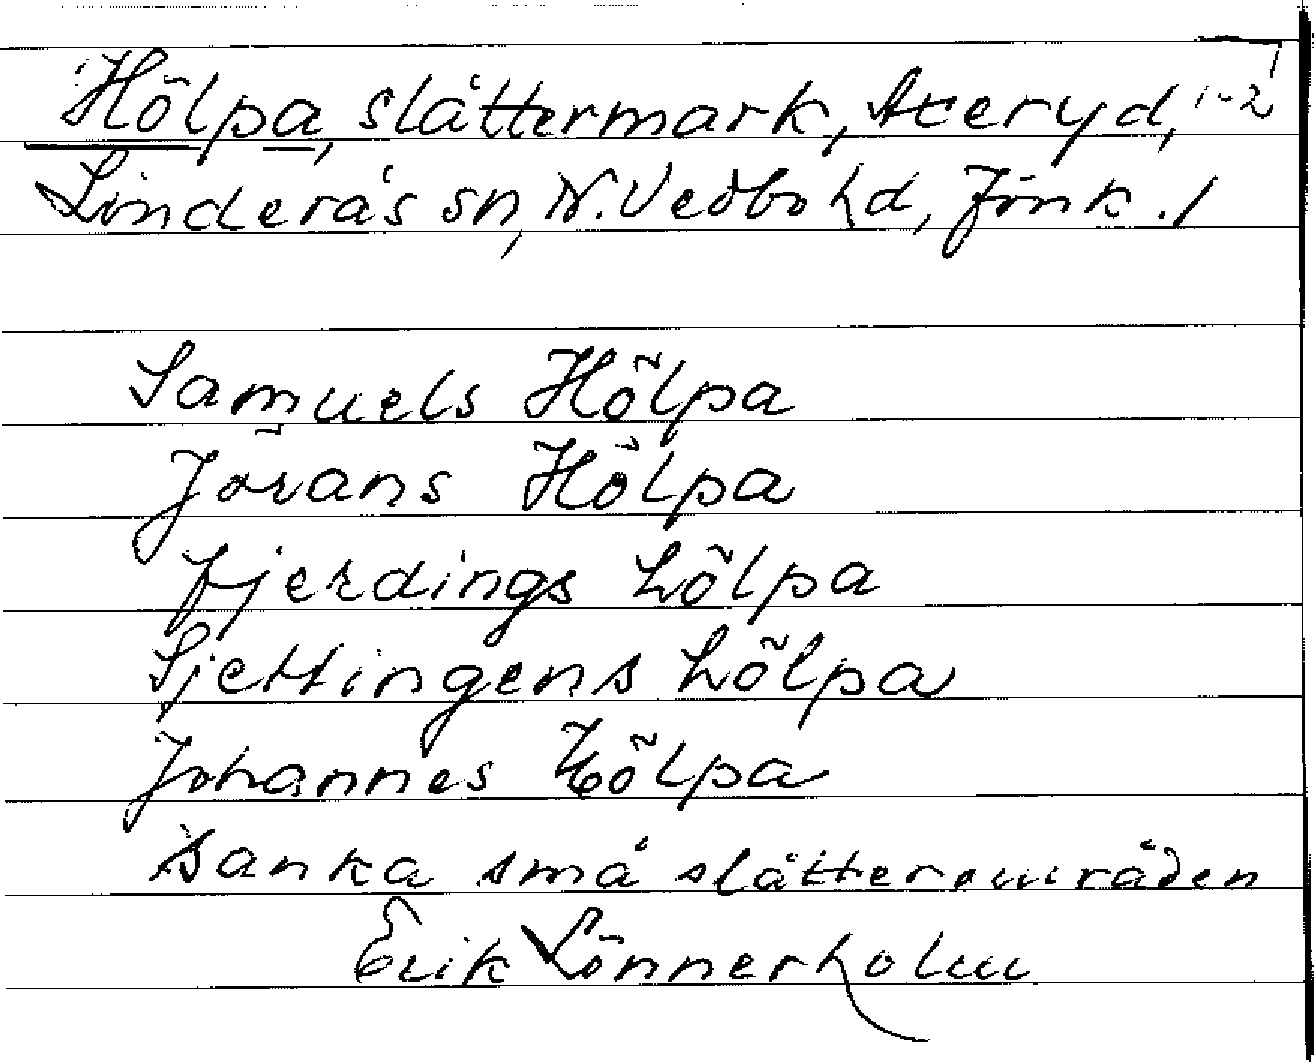 Hölpa, slättermark, Återyd, 1-2
Linderås sn, N. Vedbo hd, Jönk. l
Samuels Hölpa
Jörans Hölpa
fjerdings hölpa
Sjettingens hölpa
Johannes Hölpa
Sanka små slätterområden
Erik Lönnerholm